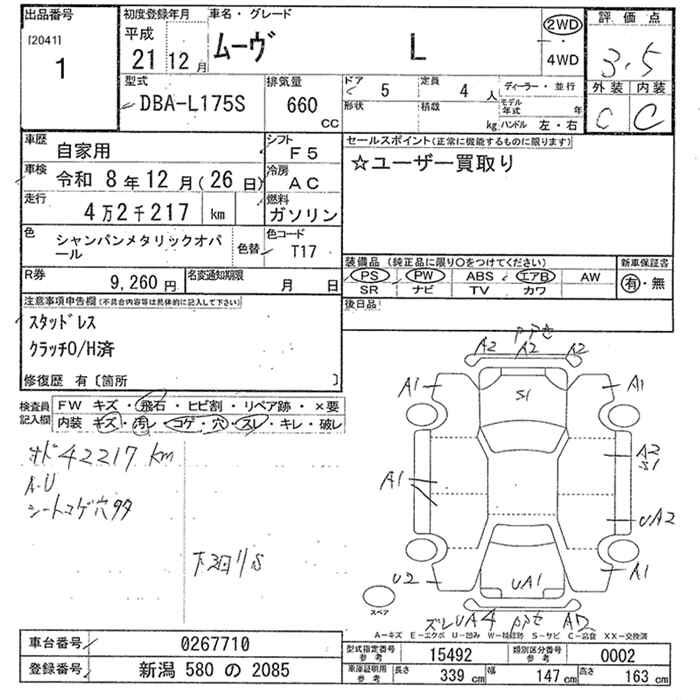 出品番号
[2041]
1
初度登録年月
平成
21 12 月
車名・グレード
ムーヴ L
2WD
4WD
評価点
3.5
外装 内装
C C
型式
DBA-L175S
排気量
660
CC
ドア
5
定員
4 人
ディーラー・並行
形状
積載
kg
モデル年式 年
ハンドル 左・右
車歴
自家用
シフト
F5
車検
令和 8年12月(26日)
冷房
AC
走行
4万2千217 km
燃料
ガソリン
色
シャンパンメタリックオパール
色替
色コード
T17
R券
9,260円
名変通知期限
月 日
セールスポイント(正常に機能するものに限ります)
☆ユーザー買取り
装備品 (純正品に限り○をつけてください)
PS PW ABS エアB AW
SR ナビ TV カワ
新車保証書
有・無
後日品
注意事項申告欄 (不具合内容等は具体的に記入して下さい)
スタッドレス
クラッチO/H済
修復歴 有〔箇所 〕
検査員記入欄
FW キズ・飛石・ヒビ割・リペア跡・×要
内装 キズ・汚レ・コゲ・穴・スレ・キレ・破レ
オド42217km
A.U
シートコゲ穴タタ
A2 A2 A2
A1 S1 A1
A1 A2
S1
UA2
U2 UA1 A1
スペア
ズレ UA4 A2
A―キズ E―エクボ U―凹み W―補修跡 S―サビ C―腐食 XX―交換済
車台番号
0267710
登録番号
新潟 580 の 2085
型式指定番号 参考
15492
類別区分番号 参考
0002
車庫証明用 参考
長さ 339 cm 幅 147 cm 高さ 163 cm